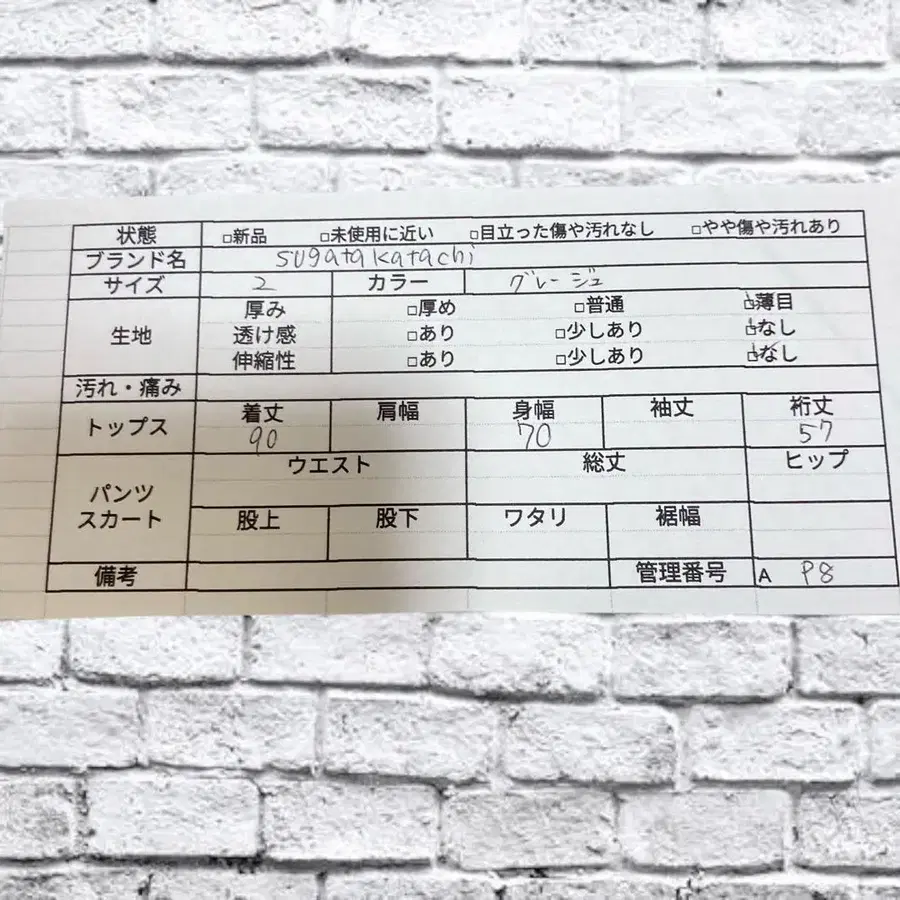 状態 □新品 □未使用に近い □目立った傷や汚れなし □やや傷や汚れあり
ブランド名 sugatakatachi
サイズ 2 カラー グレージュ
生地 厚み □厚め □普通 ☑薄目
透け感 □あり □少しあり ☑なし
伸縮性 □あり □少しあり ☑なし
汚れ・痛み
トップス 着丈 肩幅 身幅 袖丈 裄丈
90 70 57
パンツ スカート ウエスト 総丈 ヒップ
股上 股下 ワタリ 裾幅
備考 管理番号 A P8